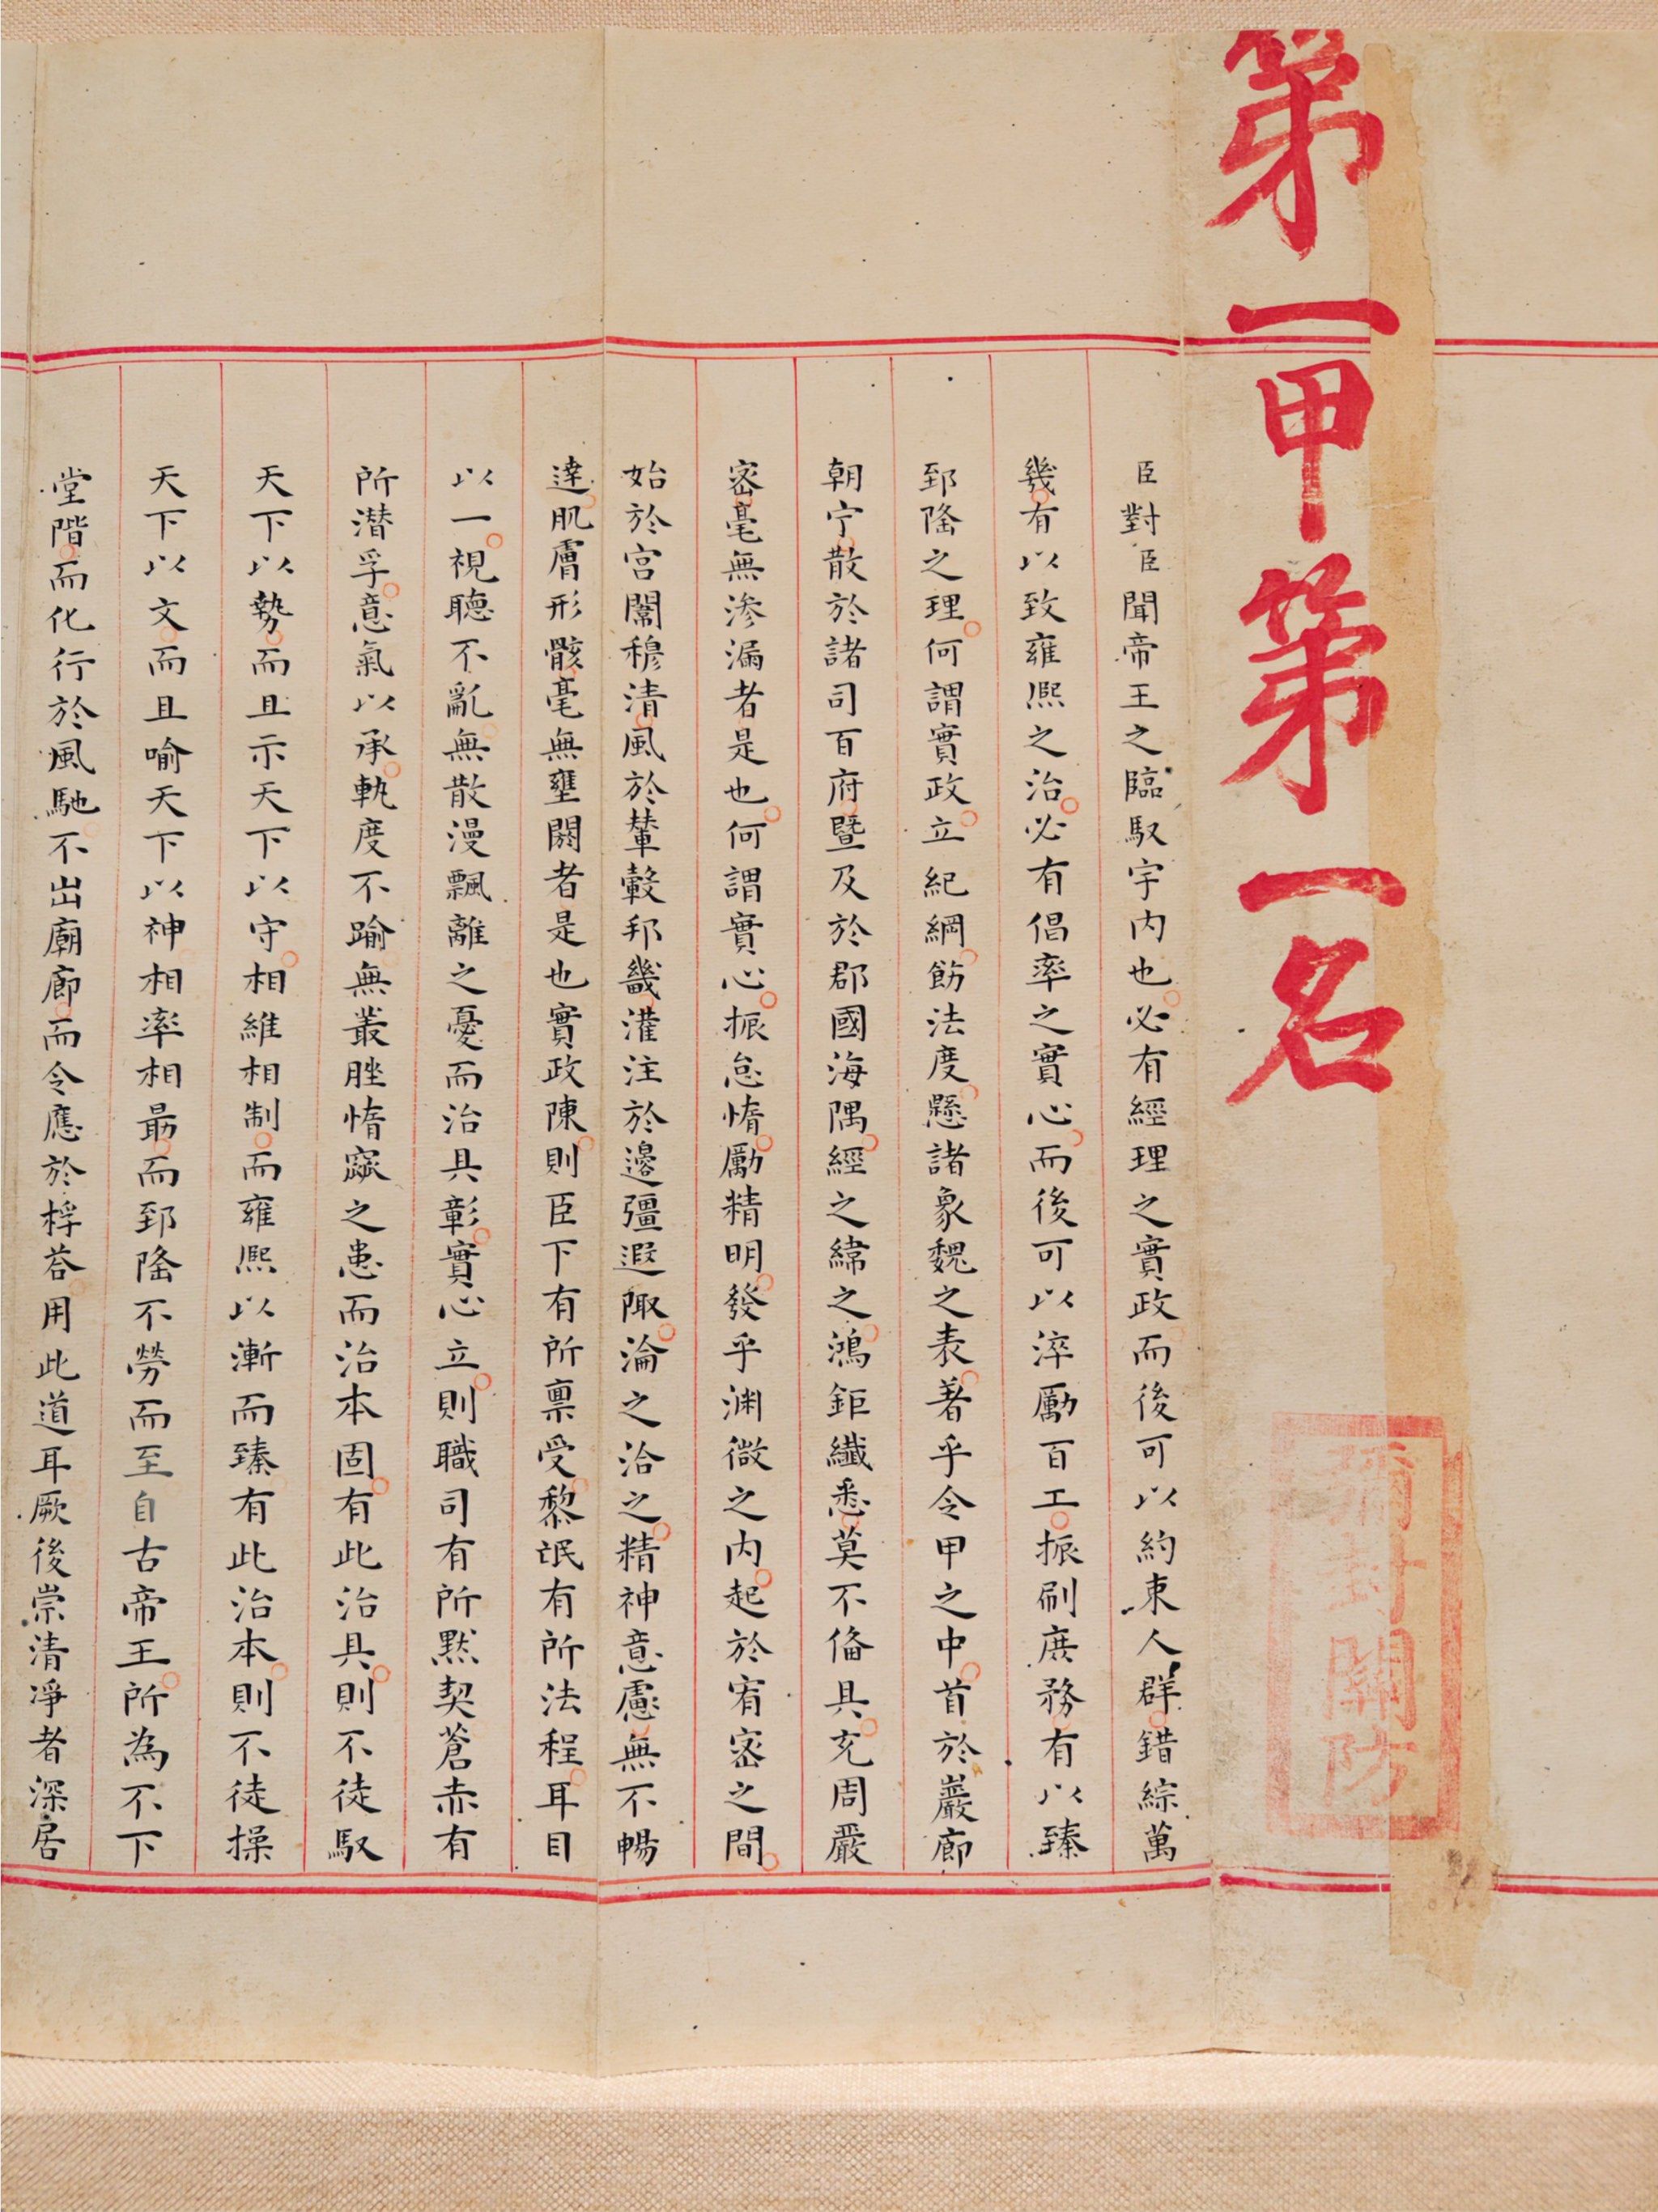 第一甲第一名
彌封關防
臣對臣聞帝王之臨馭宇内也必有經理之實政而後可以約束人群錯綜萬
幾有以致雍熙之治必有倡率之實心而後可以淬勵百工振刷庶務有以臻
郅隆之理何謂實政立紀綱飭法度懸諸象魏之表著乎令甲之中首於巖廊
朝宁散於諸司百府暨及於郡國海隅經之緯之鴻鉅纖悉莫不備具充周嚴
密毫無滲漏者是也何謂實心振怠惰勵精明發乎渊微之内起於宥密之間
始於宫闈穆清風於輦轂邦畿灌注於邊疆遐陬淪之洽之精神意慮無不暢
達肌膚形骸毫無壅閼者是也實政陳則臣下有所禀受黎氓有所法程耳目
以一視聽不亂無散漫飄離之憂而治具彰實心立則職司有所默契蒼赤有
所潜孚意氣以承軌度不踰無叢脞惰窳之患而治本固有此治具則不徒馭
天下以勢而且示天下以守相維相制而雍熙以漸而臻有此治本則不徒操
天下以文而且喻天下以神相率相勗而郅隆不勞而至自古帝王所為不下
堂階而化行於風馳不出廟廊而令應於桴荅用此道耳厥後崇清淨者深居